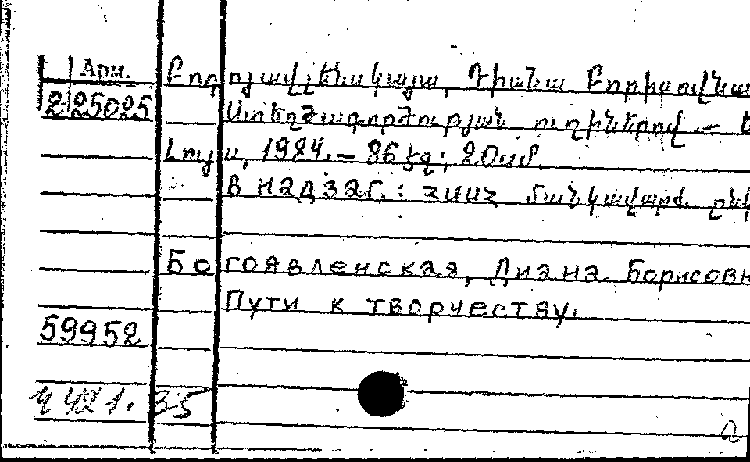 Арм.
2-25025
Բոգոյավլենսկայա, Դիանա Բորիսովնա
Ստեղծագործության ուղիներով. —
Լույս, 1984. — 86 էջ; 20սմ.
В надзаг.: ՀՍՍՀ մանկավարժ. ընկ
Богоявленская, Диана Борисовн
Пути к творчеству.
59952